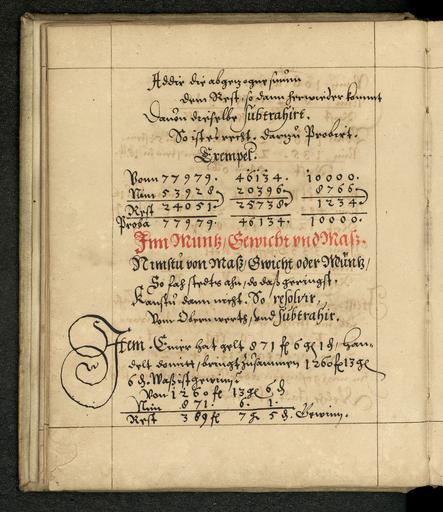 Addir die abgezogne summ
dem Rest, so dann herwieder kommt
Davon dieselbe subtrahirt.
So ist es recht. darzu Probirt.
Exempel.
Vonn 77979. 46134. 10000.
Nim 53928 20396 8766
Rest 24051 25738 1234
Proba 77979. 46134. 10000.
Inn Müntz, Gewicht vnd Maß.
Nimstu von Maß, Gwicht oder Müntz,
So fah stedts ahn, do daß geringst,
Kanstu dann nicht. So resolvir,
Vom Obern werts, vnd subtrahir.
Item. Einer hat gelt 871 fl 6 gl 1 d, han-
delt domitt, bringt zusammen 1260 fl 13 gl
6 d. Waß ist gewinn.
Von 1260 fl 13 gl 6 d
Nim 871. 6. 1.
Rest 389 fl 7 gl 5 d. Gewinn.